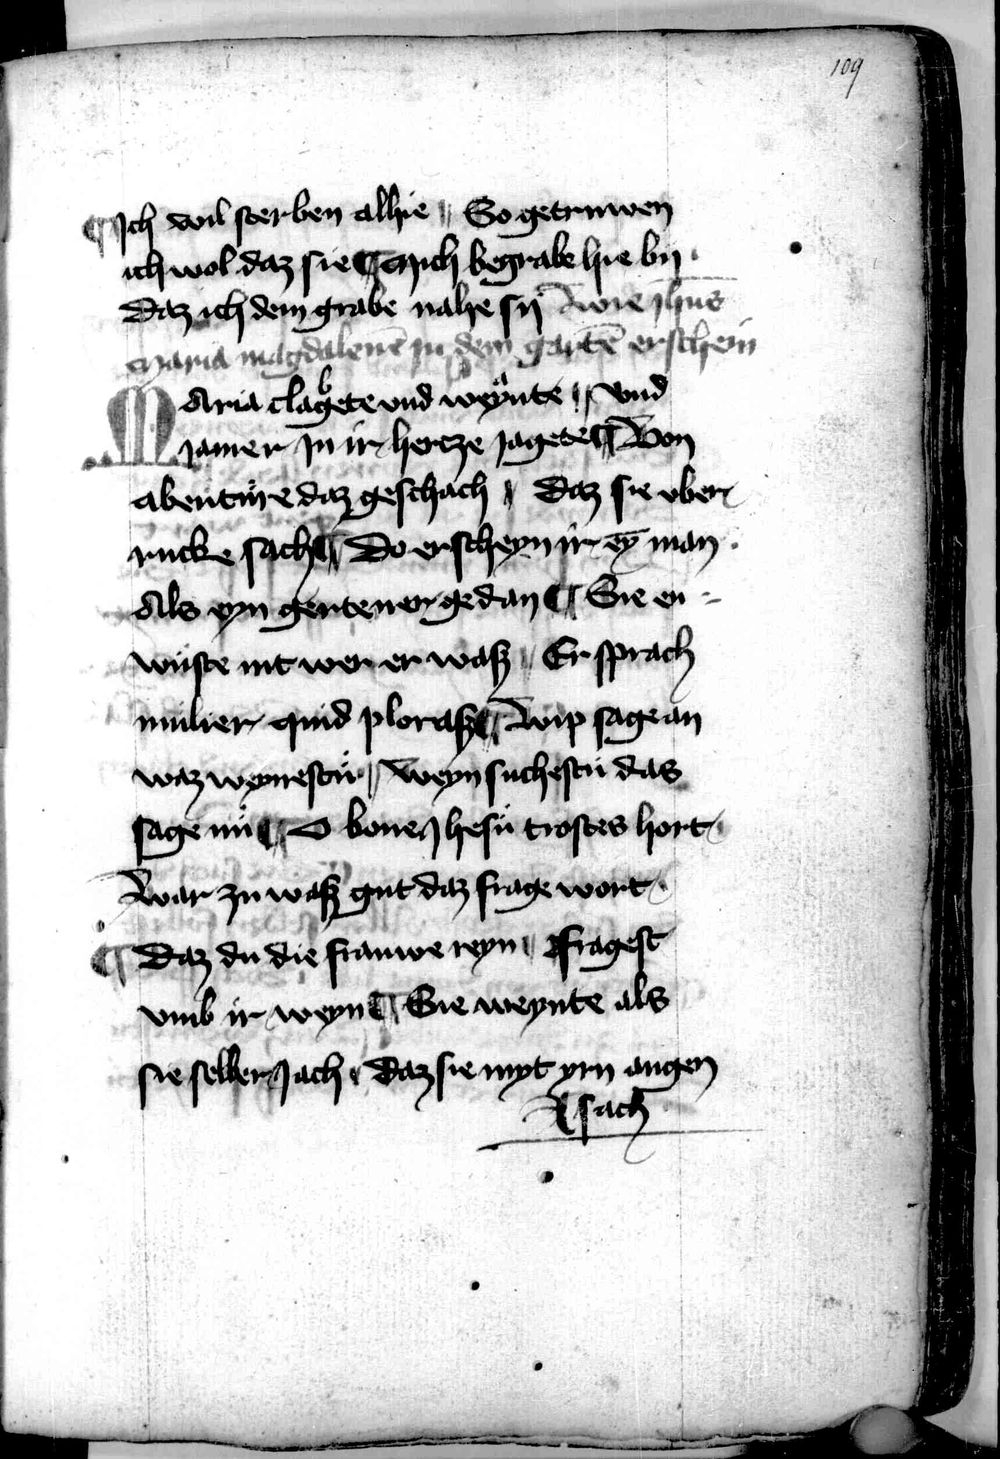 109
¶ Ich wil sterben alhie || So getruwen
ich wol daz sie ¶ Mich begrabe hie bij
Daz ich dem grabe nahe sij Wie jhūs
Maria magdalenē jn dem gartē erschein
Maria clagete vnd weynte || vnd
jamer jn ir hertze jagete ¶ Von
abentüre daz geschach || Daz sie vber
rucke sach ¶ Do erscheyn ir eȳ man
Als eyn gertener gedan ¶ Sie en-
wüste nit wer er waß || Er sprach
mulier quid ploraß ¶ Wip sage an
waz weynestü || Weyn suchestü das
sage nü ¶ O bone Jhesü trostes hort
War zu waß gut daz frage wort
¶ Daz du die frauwe reyn || fragest
vmb ir weyn ¶ Sie weynte als
sie selber Jach || Daz sie myt yrn augen
sach